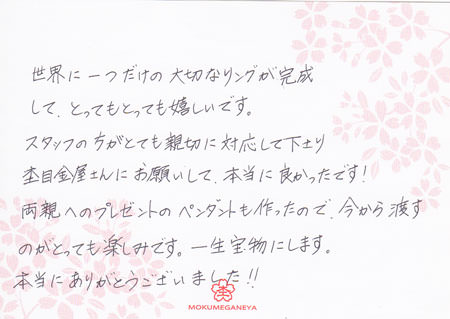 世界に一つだけの大切なリングが完成
して、とってもとっても嬉しいです。
スタッフの方がとても親切に対応して下さり
杢目金屋さんにお願いして、本当に良かったです!
両親へのプレゼントのペンダントも作ったので、今から渡す
のがとっても楽しみです。一生宝物にします。
本当にありがとうございました!!
MOKUMEGANEYA